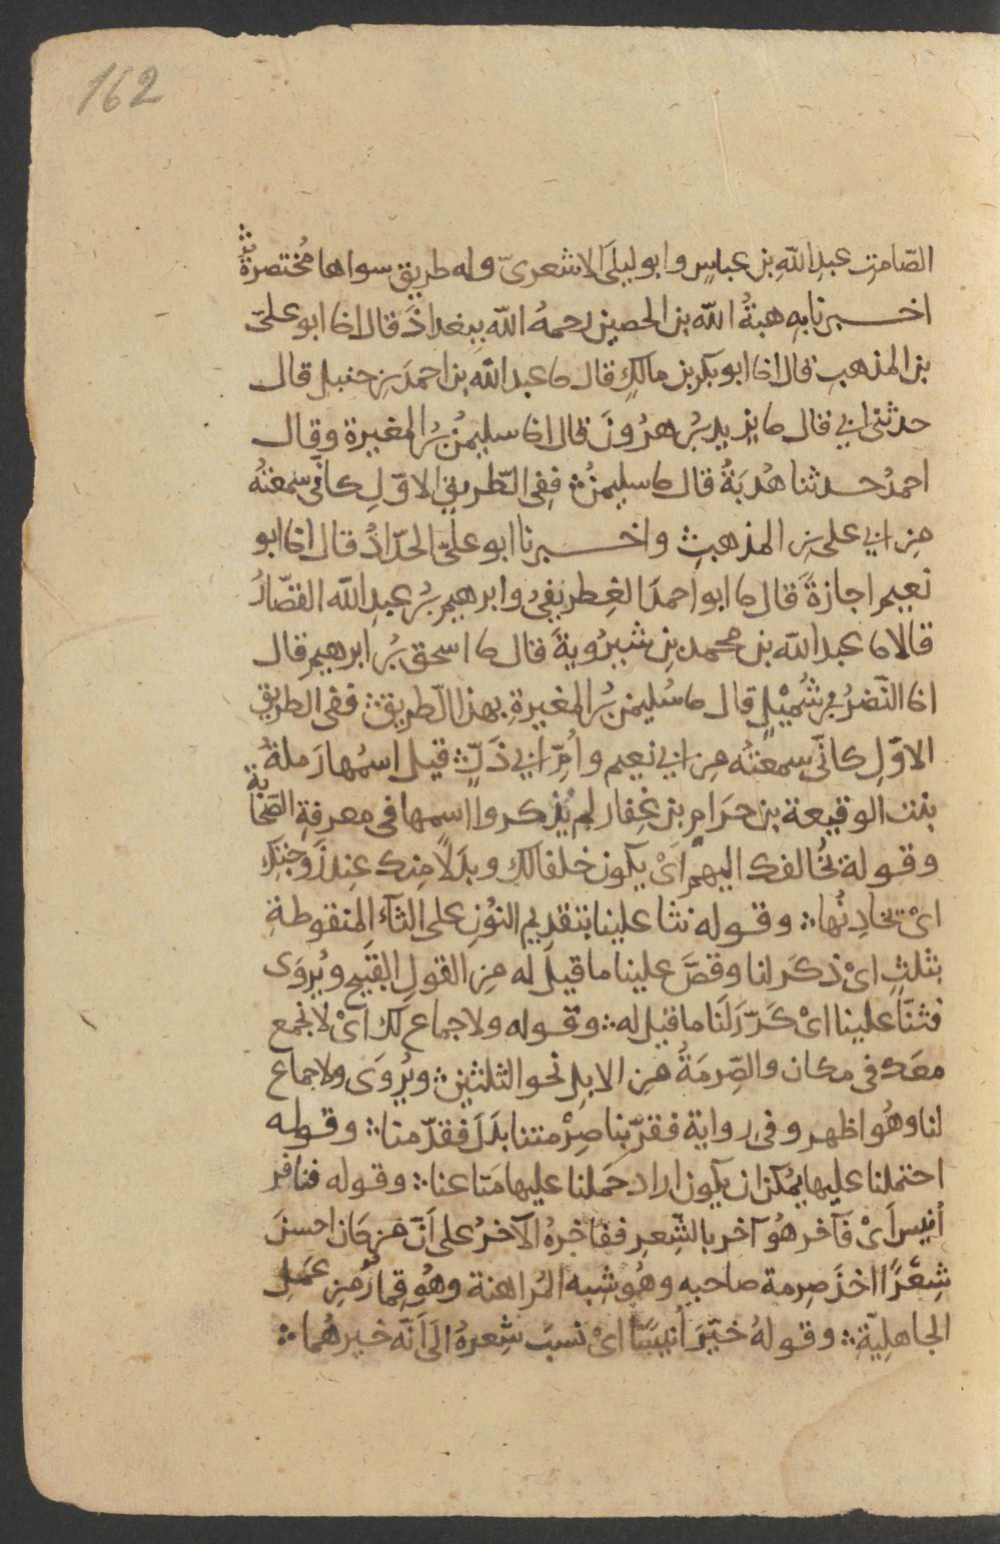 162
الصّامتِ عبدِ اللّهِ بن عباسٍ وابو ليلَى الاشعرىّ وله طريق سواها مُختصرةٌ
اخـــبرنا به هبةُ اللّه بن الحصين رحمهُ اللّه ببغداذَ قال انا ابو علىّ
بن المذهبِ قال انا ابو بكر بن مالكٍ قال ىا عبد اللّه بن احمدَ بن حنبل قال
حدثنى ابى قال ىا يزيد بنُ هرُونَ قال انا سليمنُ بنُ المغيرة وقال
احمدُ حـدثنا هُدبَةُ قال ىا سليمنُ ؞ ففِى الطّريقِ الاوّلِ كانّى سمعتُه
مِن ابى على بن المذهبِ واخـــبرنا ابو علىّ الحدّادُ قال انا ابو
نعيم اجازةً قال ىا ابو احمدَ الغِطريفىُ وابرهيم بنُ عبدِ اللّه القصّارُ
قالا ىا عبد اللّه بن محمد بنِ شيرُويةَ قال ىا اسحق بنُ ابرهيم قال
انا النّضرُ بن شُمَيْلٍ قال ىا سُليمنُ بنُ المغيرةِ بهذا الطريق ؞ ففى الطريق
الاوّلِ كانّى سمعتُه مِن ابى نعيم وأمّ ابى ذَرٍّ ؞ قيل اسمُها رَملةُ
بنت الوقيعة بن حرَامِ بن غِفار لم يذكروا اسمها فى معرفةِ الصّحابة
وقـولهُ تخُالفك اليهم اىْ يكون خلفا لك وبدَلاً مِنك عِند زَوجتِك
اىْ تخادِنُها ؞ وقـوله نثا علينا بتقديم النُوْنِ على الثآءِ المنقوطةِ
بثلثٍ اىْ ذكَر لنا وقصَّ علينا ما قيل له مِن القولِ القبيح ويُروَى
فثنّا علينا اىْ كَرّرَ لَنا ما قيل له ؞ وقـوله ولا جماع لك اىْ لا نجمع
معَك فى مكان والصِّرمَةُ مِن الابِلِ نحو الثلثين ؞ ويُروَى ولا جماع
لنا وهُو اظهر وفى رواية فقرّبنا صِرْمتنا بدَلَ فقدّمنا ؞ وقـوله
احتملنا عليها يمُكن ان يكون اراد حَملنا عليها مَتاعنا ؞ وقوله فنافر
اُنيس اَىْ فآخر هُو آخر بالشّعرِ ففاخرهُ الآخرُ على اَنّ مَن كان احسنَ
شِعْرًا اخذَ صِرمة صاحبهِ وهُو شِبه المُراهنة وهُو قِمارٌ مِن عَمَلِ
الجاهلِيّةِ ؞ وقـولهُ خيّرَ اُنيسًا اىْ نسبَ شِعرهُ الَى انّه خيرهُما ؞